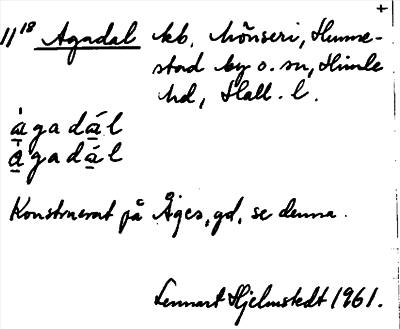 +
11¹⁸ Agadal kb. Mönseri, Hunne-
stad by o. sn, Himle
hd, Hall. l.
àgadál
àgadál
Konstruerat på Åges, gd, se denna.
Lennart Hjelmstedt 1961.